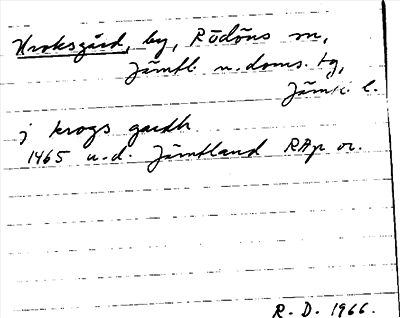 Kroksgård, by, Rödöns sn,
Jämtl. n. doms. tg,
Jämtl. l.
j krogs gardh
1465 u.d. Jämtland RAp or.
R. D. 1966.